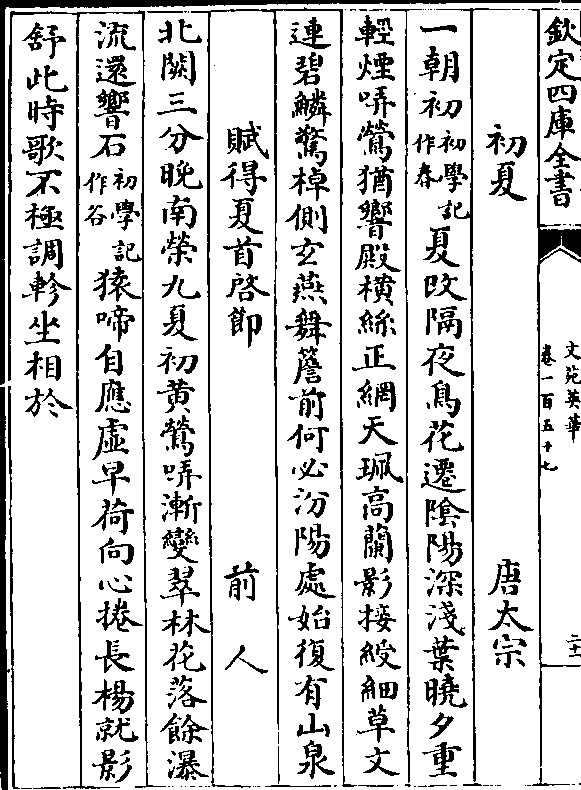 欽定四庫全書
文苑英華
卷一百五十七
初夏
唐太宗
一朝初初學記作春夏改隔夜鳥花遷陰陽深淺葉曉夕重
輕煙哢鶯猶響殿橫絲正網天珮高蘭影接綬細草文
連碧鱗驚棹側玄燕舞簷前何必汾陽處始復有山泉
賦得夏首啓節
前人
北闕三分晚南榮九夏初黄鶯哢漸變翠林花落餘瀑
流還響石初學記作谷猿啼自應虛早荷向心捲長楊就影
舒此時歌不極調軫坐相於